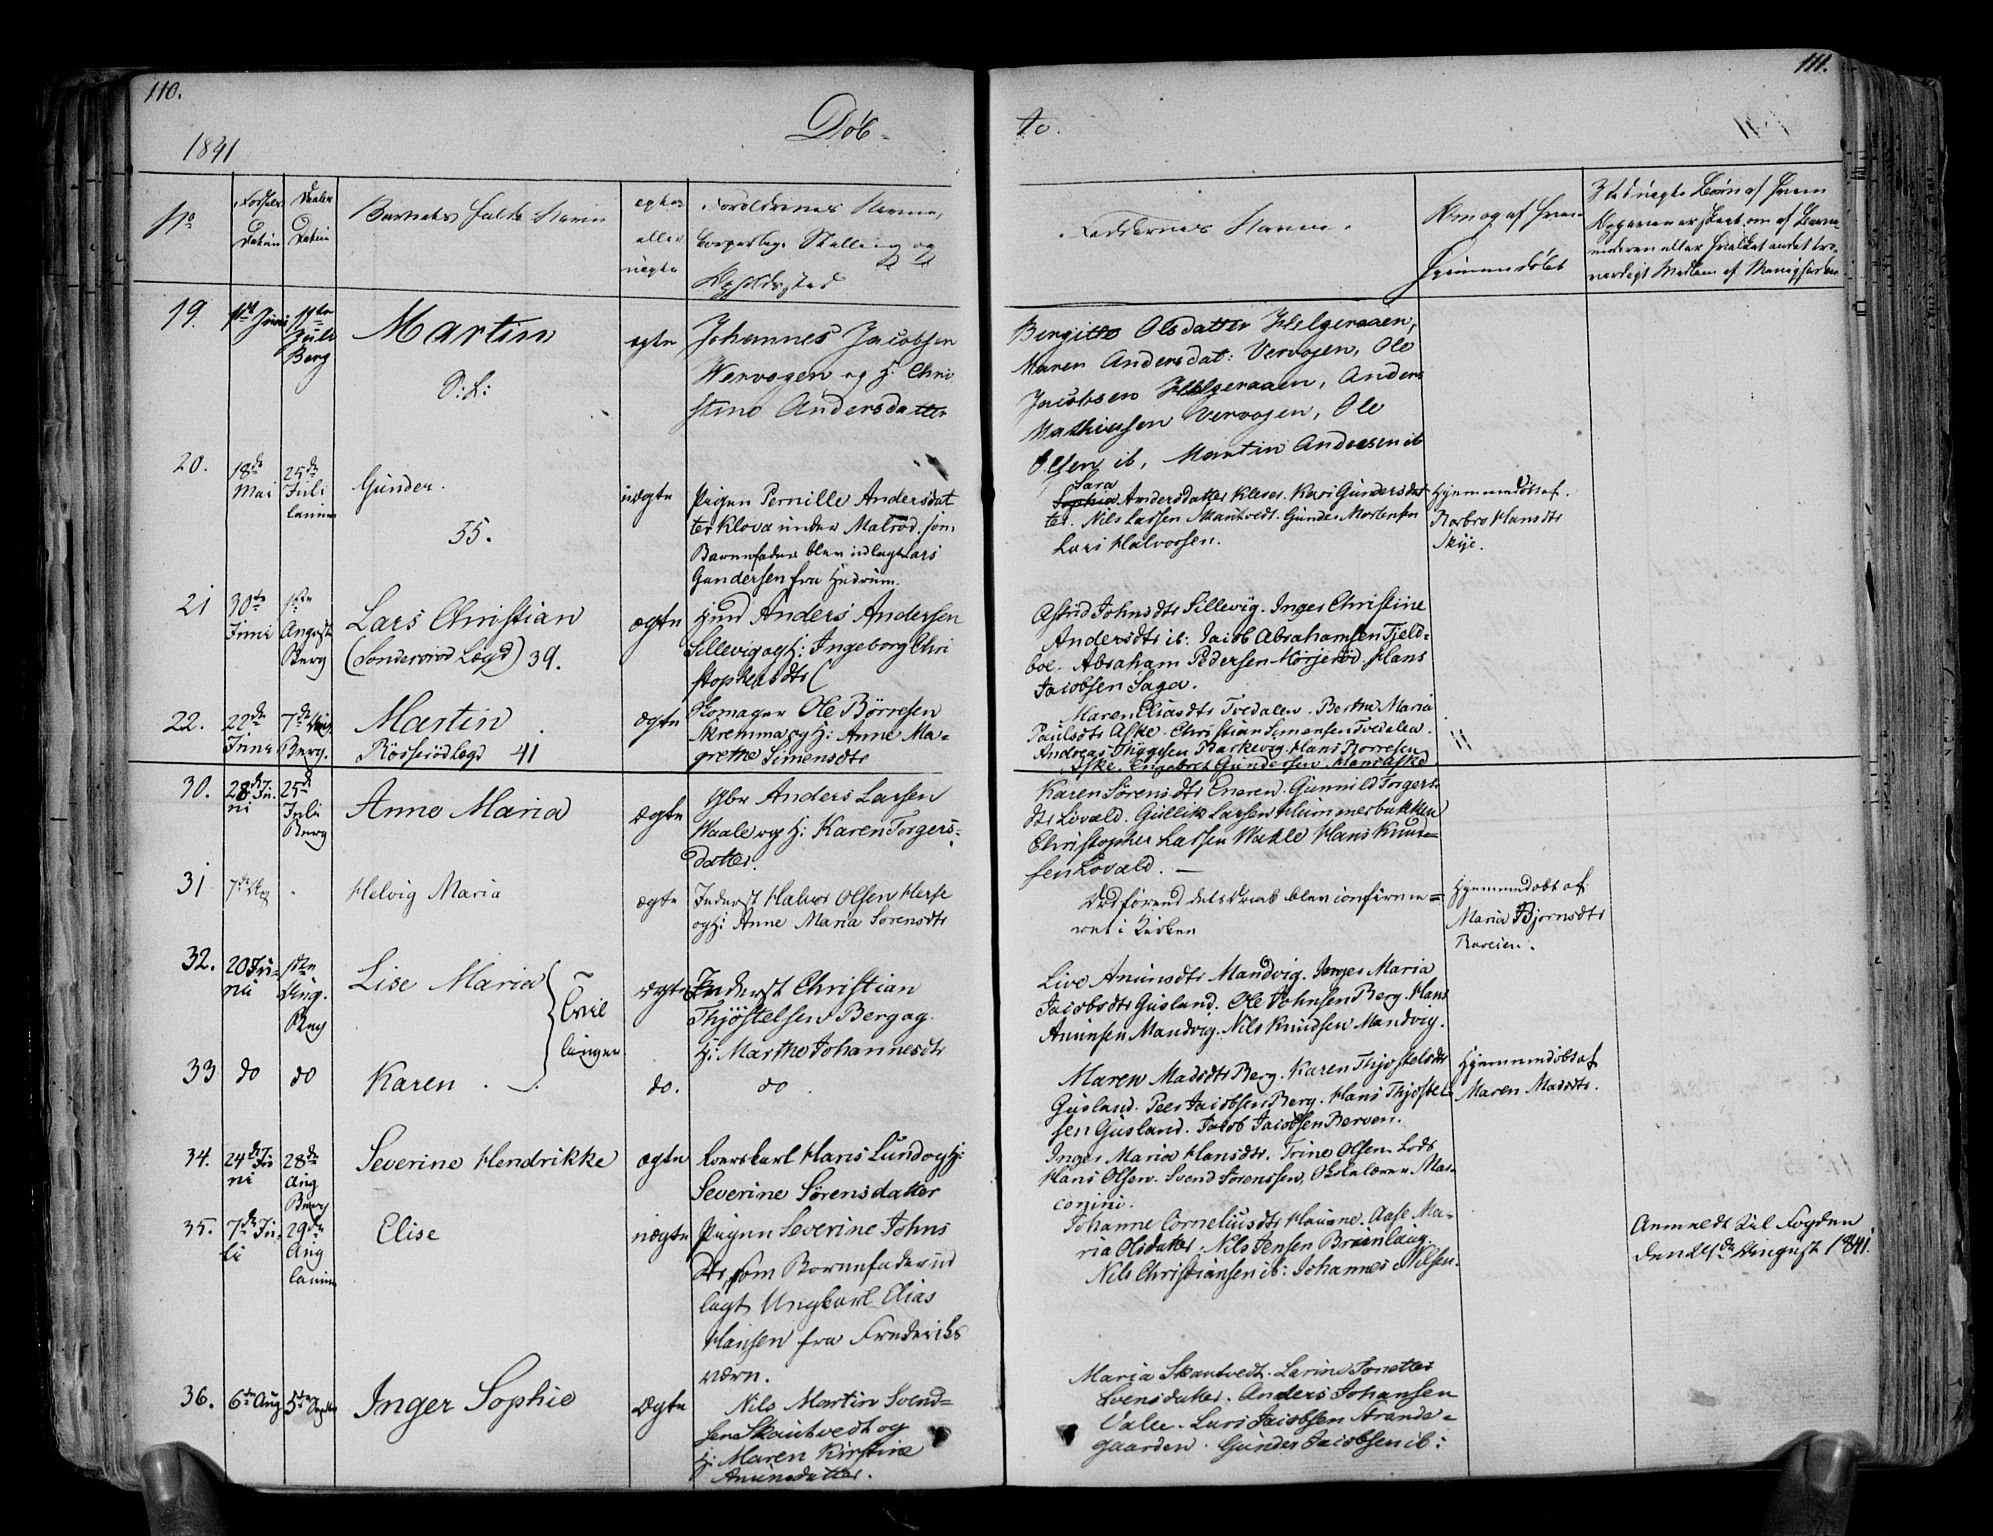 110.
111.
Döb-
te.
1841
No
Fødsels
Datum
Daabs
Datum
Barnets fulde Navn
ægte
eller
uægte
Forældrenes Navne,
Borgerlige Stilling og
Opholdssted
Faddernes Navne.
Naar og af hvem
hjemmedøbt
19.
1ste Juni
Juli
Berg
Martin
S: L:
ægte
Johannes Jacobsen
Wervogen og H: Chri
stine Andersdatter
Bergitte Olsdatter Helgeraaen,
Maren Andersdat: Vervogen, Ole
Jacobsen Helgeraaen, Anders
Mathiesen Vervogen, Ole
Olsen ib, Martin Andersen ib
20.
18de
Mai
25de
Juli
Gunder.
55.
uægte
Pigen Pernille Andersdat
ter Klova under Malrød, som
Barnefader blev udlagt Lars
Gundersen fra Hedrum.
Sara
Sophia Andersdatter Klever. Kari Gundersdat
ter. Nils Larsen Skautvedt. Gunder Mortensen
Lars Halvorsen.
Hjemmedøbt af
Barbro Hansdtr
Skije.
21
30te
Juni
1ste
August
Berg
Lars Christian
(Sonderød Lægd) 39.
ægte
Hmd Anders Andersen
Sillevig og H: Ingeborg Chri
stophersdtr
Astrid Johnsdtr Sillevig. Inger Christine
Andersdtr ib: Jacob Abrahamsen Fjeld-
boe. Abraham Pedersen Hörjeröd. Hans
Jacobsen Saga.
22.
22de
Juni
7de Aug.
Berg.
Martin
Rösseröd Lægd 41
ægte
Ole Börresen
Skremma og H: Anne Ma-
grethe Simensdtr
Maren Eliasdtr Tvedalen. Berthe Maria
Paulsdtr Aske. Christian Simensen Tvedalen.
Andreas Thygesen Barkevig. Hans Borresen
Aske. Engebret Gundersen. Hans Aske
30.
28de Ju-
ni
25de
Juli
Berg
Anne Maria
ægte
Gbr Anders Larsen
Vaale og H: Karen Torgers-
datter.
Karen Sörensdtr Eneren. Gunnild Torgers-
dtr Lövald. Gullik Larsen Hummerbakken
Christopher Larsen Wahle Hans Knud-
sen Lovald. —
31
7de Aug
Helvig Maria
ægte
Inderst Halvor Olsen Herfe
og H: Anne Maria Sorensdtr
Död förend dets Daab blev confirme-
ret i Kirken
Hjemmedøbt af
Maria Bjornsdtr
32.
20 Ju-
ni
1ste
Aug.
Berg
Lise Maria
Tvil
linger
ægte
Inderst Christian
Thjöstelsen Berg og
H: Marthe Johannesdtr
Live Anunsdtr Mandvig. Inger Maria
Jacobsdtr Gusland. Ole Johnsen Berg. Hans
Anunsen Mandvig. Nils Knudsen Mandvig.
33
do
do
Karen
do.
do
Maren Madsdtr Berg. Karen Thjöstelsdtr
Gusland. Peer Jacobsen Berg. Hans Thjöstel-
sen Gusland. Jacob Jacobsen Berven.
Hjemmedøbt af
Maren Madsdtr.
34.
24de Ju
ni
28de
Aug
Berg
Severine Hendrikke
ægte
Hans Lund og H:
Severine Sörensdatter
Inger Maria Hansdtr. Trine Olsen. Lods
Hans Olsen. Svend Sörenssen, Skolelærer Mar-
conjini.
35.
7de Ju-
li
29de
Aug
Elise
uægte
Pigen Severine Johns
dtr, som Barnefader ud
lagt Ungkarl Elias
Hansen fra Frederiks
værn.
Johanne Corneliusdtr Haugne. Aase Ma-
ria Olsdatter. Nils Jensen Brunlaug.
Nils Christiansen ib: Johannes Nilsen.
Anmeldt til Fogden
den 24de August 1841.
36.
6te Aug
5te
Inger Sophie
ægte
Nils Martin Svend-
sen Skautvedt og
H: Maren Kirstine
Anunsdatter.
Maria Skautvedt. Larine Tonette
Svensdatter. Anders Johansen
Valee. Lars Jacobsen Strande-
gaarden. Gunder Jacobsen ib: